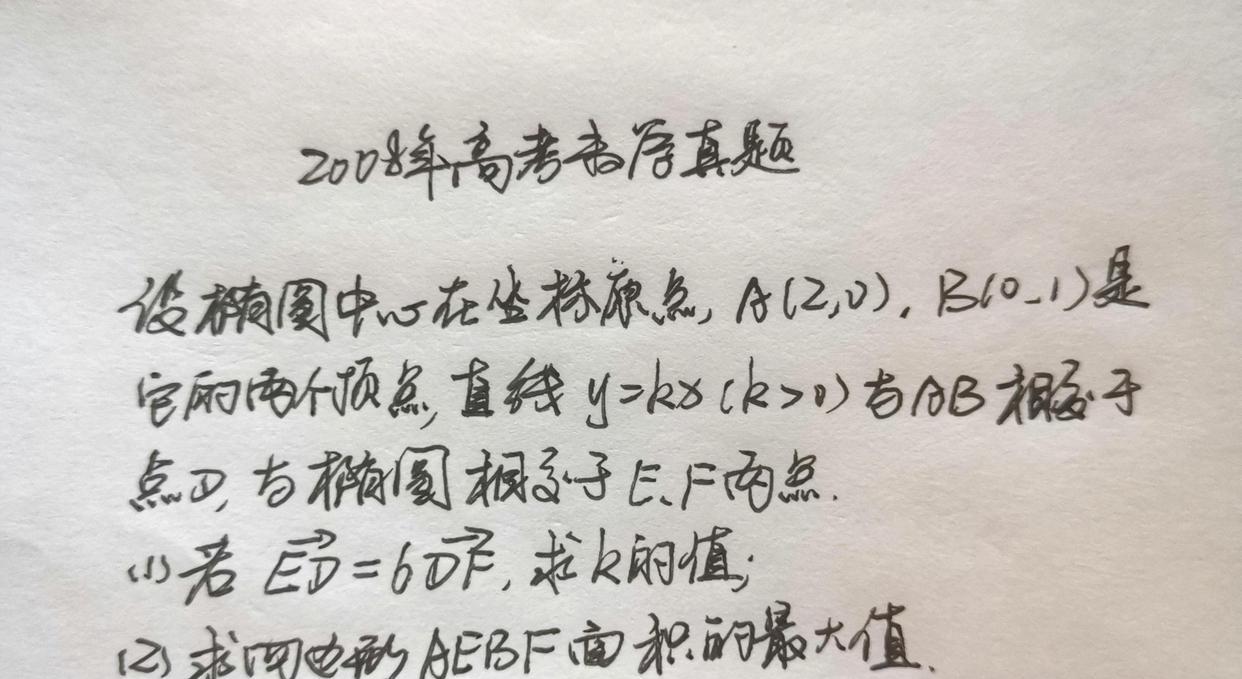 2008年高考数学真题
设椭圆中心在坐标原点, A(2,0), B(0,1)是
它的两个顶点,直线 y=kx(k>0)与AB相交于
点D,与椭圆相交于E、F两点.
(1)若 \overrightarrow{ED}=6\overrightarrow{DF},求k的值;
(2)求四边形AEBF面积的最大值.